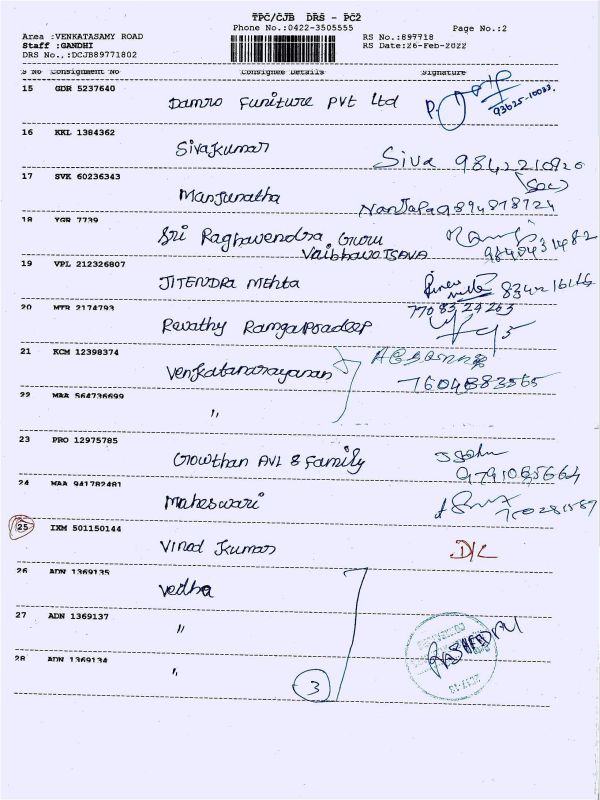 TPC/CJB DRS - PC2
Phone No.:0422-3505555
Page No.:2
Area :VENKATASAMY ROAD
RS No.:897718
Staff :GANDHI
RS Date:26-Feb-2022
DRS No.,:DCJB89771802
S No Consignment No Consignee Details Signature
15 GDR 5237640 Damro Funiture PVT Ltd
93625-10033.
16 KKL 1384362 Sivakumar Siva
17 SVK 60236343 Manjunatha
9894878724
18 YGR 7739 Sri Raghavendra Guru
19 VPL 212326807 JITENDRA MEhta
20 MTR 2174793 Revathy Ramgapradeep
7708324263
21 KCM 12398374 Venkatanarayanan
7604883565
22 MAA 564736699 "
23 PRO 12975785 Gowthan AVL & Family
24 MAA 941782481 Maheswari
25 IXM 501150144 Vinod Kumar D/L
26 ADN 1369135 Vedha
27 ADN 1369137 "
28 ADN 1369134 "
3